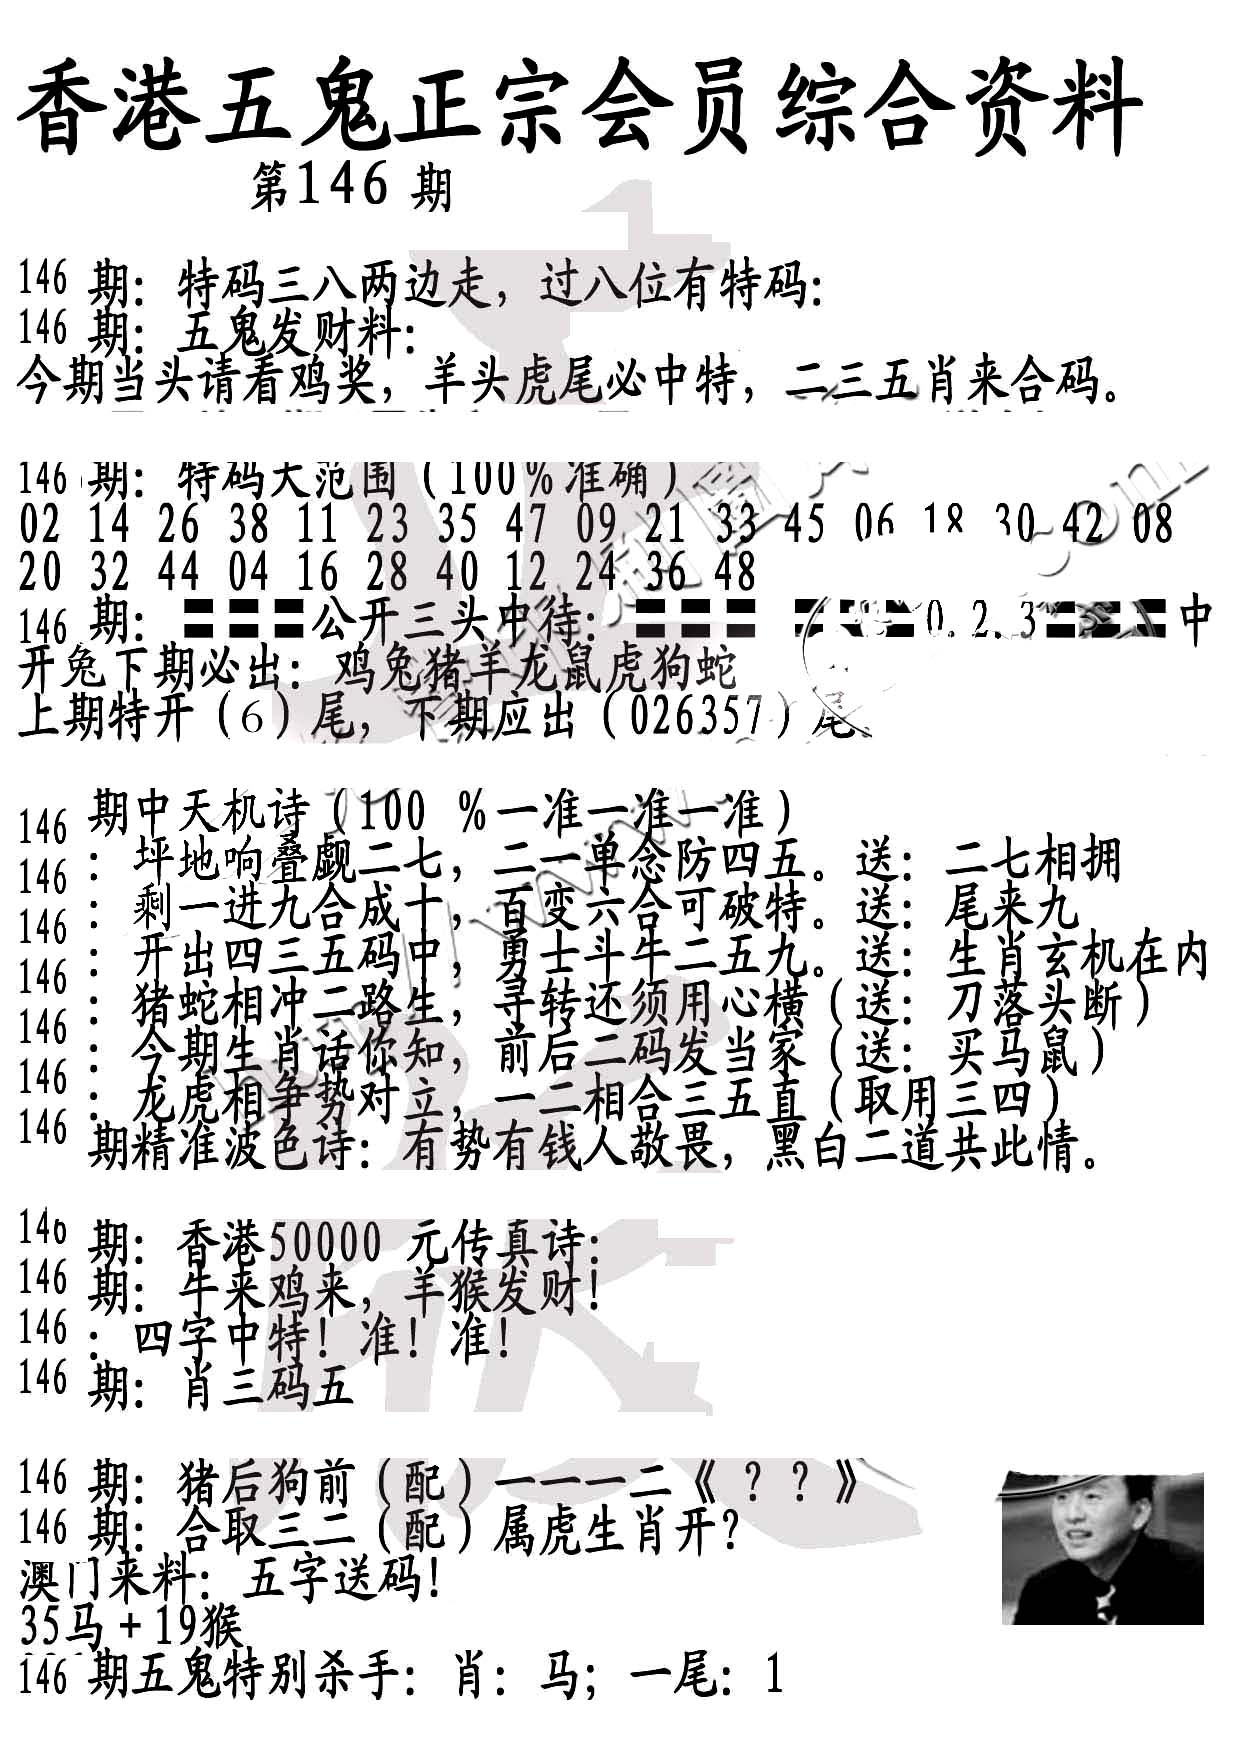 香港五鬼正宗会员综合资料
第146 期
146 期：特码三八两边走，过八位有特码：
146 期：五鬼发财料：
今期当头请看鸡奖，羊头虎尾必中特，二三五肖来合码。
146 期：特码大范围（100％准确）
02 14 26 38 11 23 35 47 09 21 33 45 06 18 30 42 08
20 32 44 04 16 28 40 12 24 36 48
146 期：☷公开三头中待：☷ ☷0.2.3☷中
开兔下期必出：鸡兔猪羊龙鼠虎狗蛇
上期特开（6）尾，下期应出（026357）尾.
146 期中天机诗（100 ％一准一准一准）
146 ：坪地响叠觑二七，二一单念防四五。送：二七相拥
146 ：剩一进九合成十，百变六合可破特。送：尾来九
146 ：开出四三五码中，勇士斗牛二五九。送：生肖玄机在内
146 ：猪蛇相冲二路生，寻转还须用心横（送：刀落头断）
146 ：今期生肖话你知，前后二码发当家（送：买马鼠）
146 ：龙虎相争势对立，一二相合三五直（取用三四）
146 期精准波色诗：有势有钱人敬畏，黑白二道共此情。
146 期：香港50000 元传真诗：
146 期：牛来鸡来，羊猴发财！
146 ：四字中特！准！准！
146 期：肖三码五
146 期：猪后狗前（配）一一一二《？？》
146 期：合取三二（配）属虎生肖开？
澳门来料：五字送码！
35马+19猴
146 期五鬼特别杀手：肖：马；一尾：1